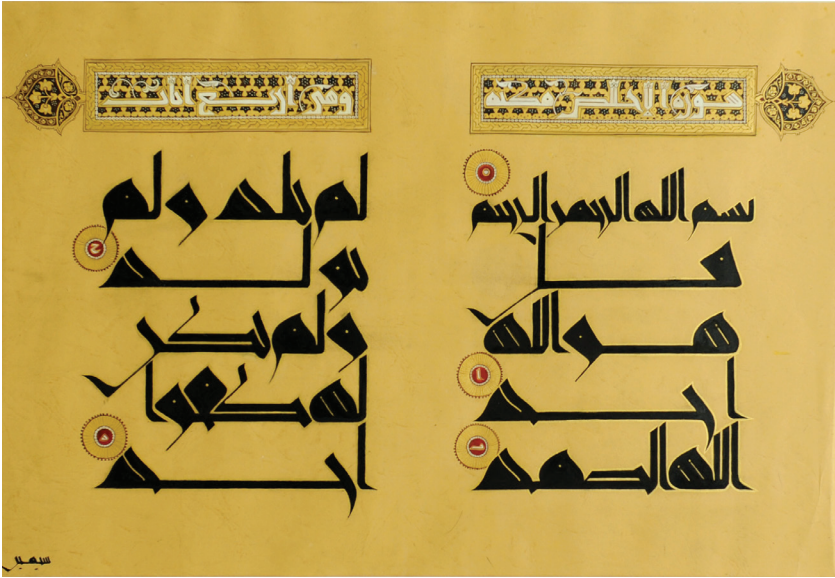 سورة الاخلاص مكية
بسم الله الرحمن الرحيم
قل
هو الله
احد ١
الله الصمد
وهي أربع آيات
لم يلد ولم
يولد
ولم يكن
له كفوا
احد